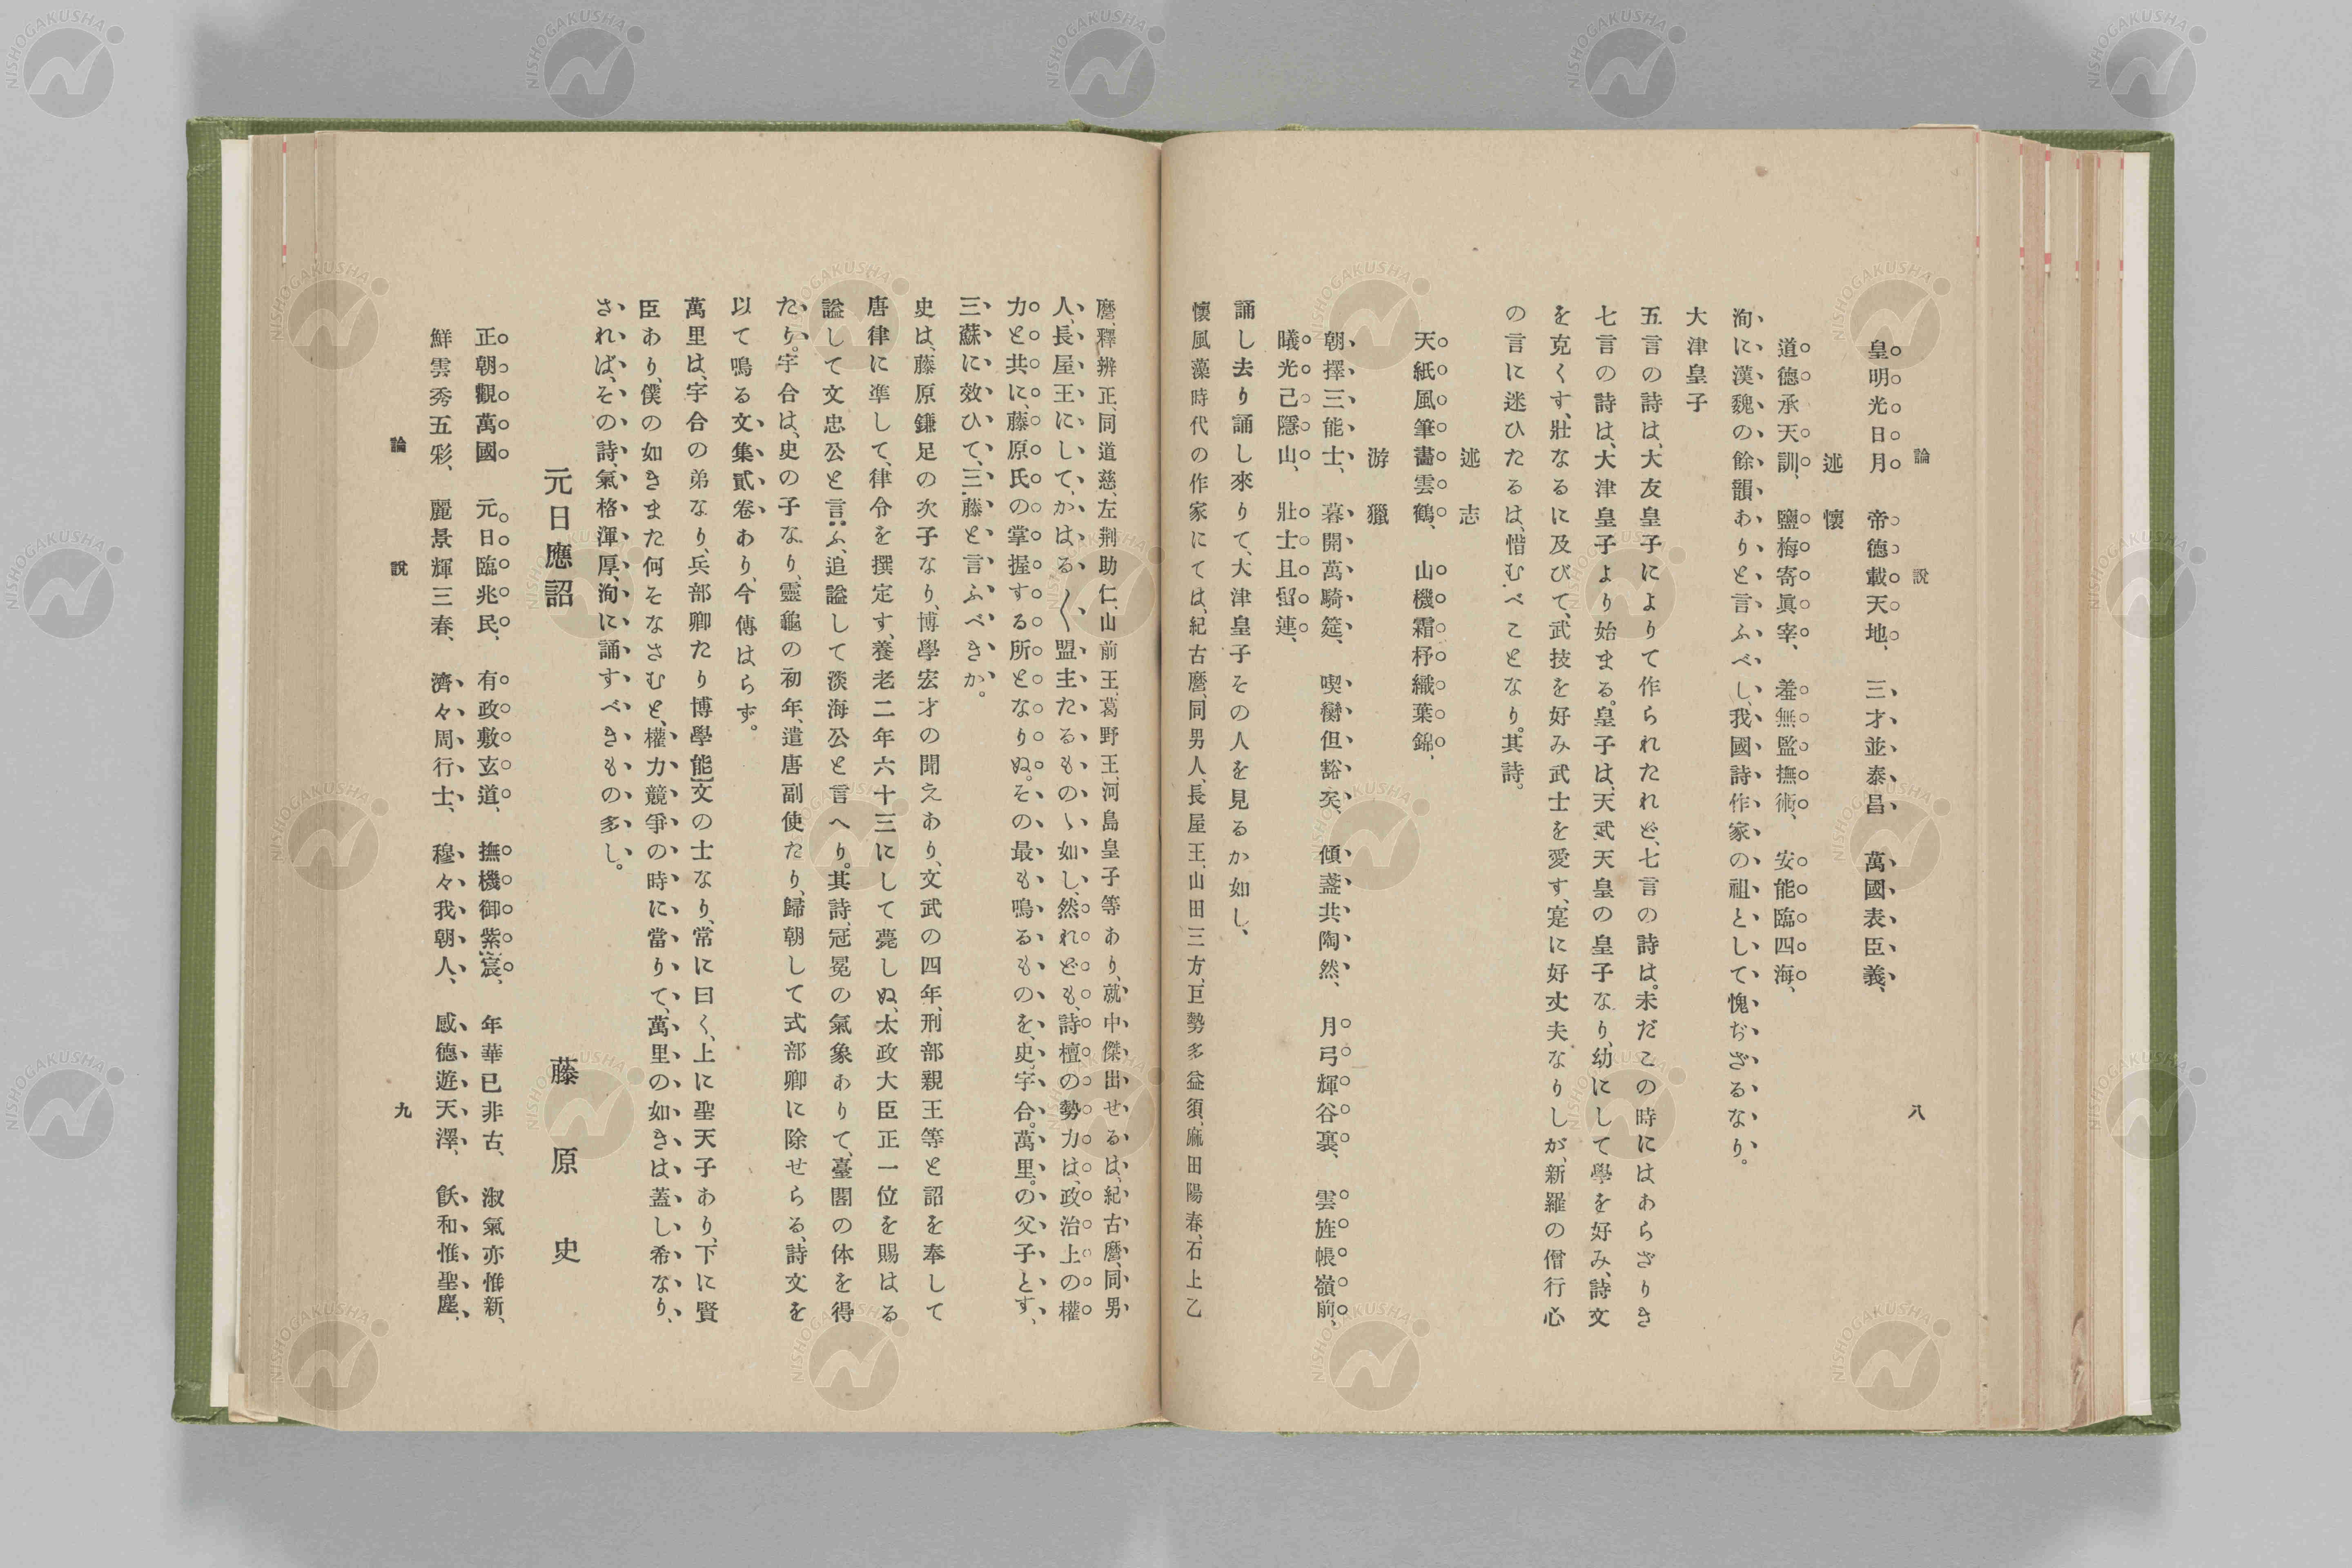 論說
八
皇明光日月　帝德載天地、　三才並泰昌、　萬國表臣義、
述懷
道德承天訓、　鹽梅寄眞宰、　羞無監撫術、　安能臨四海、
洵に漢魏の餘韻ありと言ふべし、我國詩作家の祖として愧ぢざるなり。
大津皇子
五言の詩は、大友皇子によりて作られたれど、七言の詩は。未だこの時にはあらざりき
七言の詩は、大津皇子より始まる。皇子は、天武天皇の皇子なり、幼にして學を好み、詩文
を克くす、壯なるに及びて、武技を好み武士を愛す、寔に好丈夫なりしが、新羅の僧行心
の言に迷ひたるは、惜む.べことなり。其詩。
述志
天紙風筆畵雲鶴、　山機霜杼織葉錦、
游獵
朝擇三能士、　暮開萬騎筵、　喫臠但豁矣、　傾盞共陶然、　月弓輝谷裏、　雲旌帳嶺前、
曦光己隱山、　壯士且留連、
誦し去り誦し來りて、大津皇子その人を見るか如し、
懷風藻時代の作家にては、紀古麿、同男人、長屋王、山田三方、巨勢多益須、麻田陽春、石上乙
麿、釋辨正、同道慈、左荆助仁、山前王、葛野王、河島皇子等あり、就中傑出せるは、紀古麿、同男
人、長屋王にして、かはる〱盟主たるものゝ如し、然れども、詩檀の勢力は、政治上の權
力と共に、藤原氏の掌握する所となりぬ。その最も鳴るものを、史、宇合。萬里。の父子とす、
三蘇に效ひて、三藤と言ふべきか。
史は、藤原鎌足の次子なり、博學宏才の聞えあり、文武の四年、刑部親王等と詔を奉して
唐律に凖して、律令を撰定す、養老二年六十三にして薨しぬ、太政大臣正一位を賜はる
謚して文忠公と言ふ、追謚して淡海公と言へり。其詩、冠冕の氣象ありて、臺閣の体を得
たり。宇合は、史の子なり、靈龜の初年、遣唐副使たり、歸朝して式部卿に除せらる、詩文を
以て鳴る文集貳卷あり、今傳はらず。
萬里は、宇合の弟なり、兵部卿たり博學能文の士なり、常に曰く、上に聖天子あり、下に賢
臣あり、僕の如きまた何そなさむと、權力競爭の時に當りて、萬里の如きは、蓋し希なり、
されば、その詩、氣格渾厚、洵に誦すべきもの多し。
元日應詔　藤原史
正朝觀萬國　元日臨兆民、　有政敷玄道、　撫機御紫宸、　年華已非古、　淑氣亦惟新、
鮮雲秀五彩、　麗景輝三春、　濟々周行士、　穆々我朝人、　感德遊天澤、　飫和惟聖塵、
論說
九